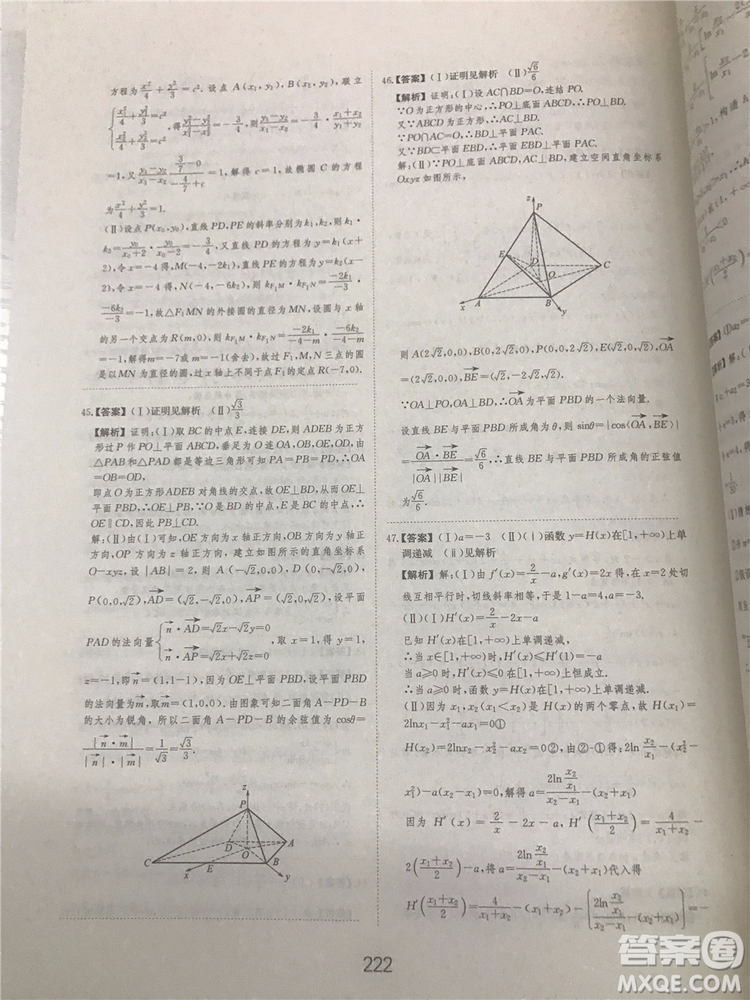 方程为x²/4+y²/3=c². 设点 A(x₁,y₁), B(x₂,y₂), 联立
{x₁²/4+y₁²/3=c² x₂²/4+y₂²/3=c²
=1, 解得 c=1, 故椭圆 C 的方程
为x²/4+y²/3=1.
(Ⅱ)设点 P(x₀,y₀), 直线 PD, PE 的斜率分别为 k₁,k₂, k₁·
k₂=y₀/(x₀+2)·y₀/(x₀-2)=-3/4, 又直线 PD 的方程为 y=k₁(x+
2), 令 x=-4 得, M(-4,-2k₁), 直线 PE 的方程为 y=k₂(x-
2), 令 x=-4 得, N(-4,-6k₂), 则 k_F₁M·k_F₁N=-2k₁/-3·
-6k₂/-3=-1, 故△F₁MN 的外接圆的直径为 MN, 设圆与 x 轴
的另一个交点为 R(m,0), 则 k_F₁M·k_F₁N=-2k₁/(-4-m)·-6k₂/(-4-m)
=-1, 解得 m=-7 或 m=-1(舍去), 故过 F₁,M,N 三点的圆
是以 MN 为直径的圆, 过 x 轴上不同于点 F₁ 的定点 R(-7,0).
45.【答案】 (Ⅰ)证明见解析 (Ⅱ)√3/3
【解析】证明:(Ⅰ)取 BC 的中点 E, 连接 DE, 则 ADEB 为正方
形过 P 作 PO⊥平面 ABCD, 垂足为 O 连 OA,OB,OD,OE, 由
△PAB 和△PAD 都是等边三角形可知 PA=PB=PD, ∴OA
=OB=OD,
即点 O 为正方形 ADEB 对角线的交点, 故 OE⊥BD, 从而 OE⊥
平面 PBD, ∴OE⊥PB, ∵O 是 BD 的中点, E 是 BC 的中点,
∴OE∥CD. 因此 PB⊥CD.
解:(Ⅱ)由(Ⅰ)可知, OE 方向为 x 轴正方向, OB 方向为 y 轴正
方向, OP 方向为 z 轴正方向, 建立如图所示的直角坐标系
O-xyz, 设 |AB|=2, 则 A(-√2,0,0), D(0,-√2,0),
P(0,0,√2), AD=(√2,-√2,0), AP=(√2,0,√2), 设平面
PAD 的法向量{n·AD=√2x-√2y=0 n·AP=√2x+√2z=0, 取 x=1, 得 y=1,
z=-1, 即 n=(1,1,-1), 因为 OE⊥平面 PBD, 设平面 PBD
的法向量为 m, 取 m=(1,0,0). 由图象可知二面角 A-PD-B 的
大小为锐角, 所以二面角 A-PD-B 的余弦值为 cosθ=
|n·m|/|n|·|m|=1/√3=√3/3.
z
P
D
A
C
O
B
E
x
y
46.【答案】 (Ⅰ)证明见解析 (Ⅱ)√6/6
【解析】证明:(Ⅰ)设 AC∩BD=O, 连结 PO.
∵O 为正方形的中心, ∴PO⊥底面 ABCD, ∴PO⊥BD.
又∵ABCD 为正方形, ∴BD⊥AC.
∵PO∩AC=O, ∴BD⊥平面 PAC.
又∵BD⊂平面 EBD, ∴平面 EBD⊥平面 PAC.
解:(Ⅱ)∵PO⊥底面 ABCD, BD⊥AC, 建立空间直角坐标系
Oxyz 如图所示,
z
P
E
D
C
O
A
B
x
y
∵OA⊥PO, OA⊥BD, ∴OA为平面 PBD 的一个法向量.
设直线 BE 与平面 PBD 所成角为 θ, 则 sinθ=|cos⟨OA,BE⟩|
=|OA·BE/|OA||BE||=√6/6, ∴直线 BE 与平面 PBD 所成角的正弦值
为√6/6.
47.【答案】 (Ⅰ)a=-3 (Ⅱ)(ⅰ)函数 y=H(x)在[1,+∞)上单
调递减 (ⅱ)见解析
【解析】解:(Ⅰ)由 f′(x)=2/x-a, g′(x)=2x 得, 在 x=2 处切
线互相平行时, 切线斜率相等, 于是 1-a=4, a=-3.
(Ⅱ)(Ⅰ)H′(x)=2/x-2x-a
已知 H′(x)在[1,+∞)上单调递减,
∴当 x∈[1,+∞)时, H′(x)≤H′(1)=-a
当 a≥0 时, H′(x)≤0 在[1,+∞)上恒成立.
∴当 a≥0 时, 函数 y=H(x)在[1,+∞)上单调递减.
(Ⅱ)因为 x₁,x₂(x₁<x₂)是 H(x)的两个零点, 故 H(x₁)=
2lnx₁-x₁²-ax₁=0①
H(x₂)=2lnx₂-x₂²-ax₂=0②, 由②-①得:2ln x₂/x₁-(x₂²-
x₁²)-a(x₂-x₁)=0, 解得 a=2ln(x₂/x₁)/(x₂-x₁)-(x₂+x₁)
因为 H′(x)=2/x-2x-a, H′((x₁+x₂)/2)=4/(x₁+x₂)-
2((x₁+x₂)/2)-a, 将 a=2ln(x₂/x₁)/(x₂-x₁)-(x₂+x₁)代入得
H′((x₁+x₂)/2)=4/(x₁+x₂)-(x₁+x₂)-[2ln(x₂/x₁)/(x₂-x₁)-(x₂+x₁)]=
222
答案圈
MXQE.COM